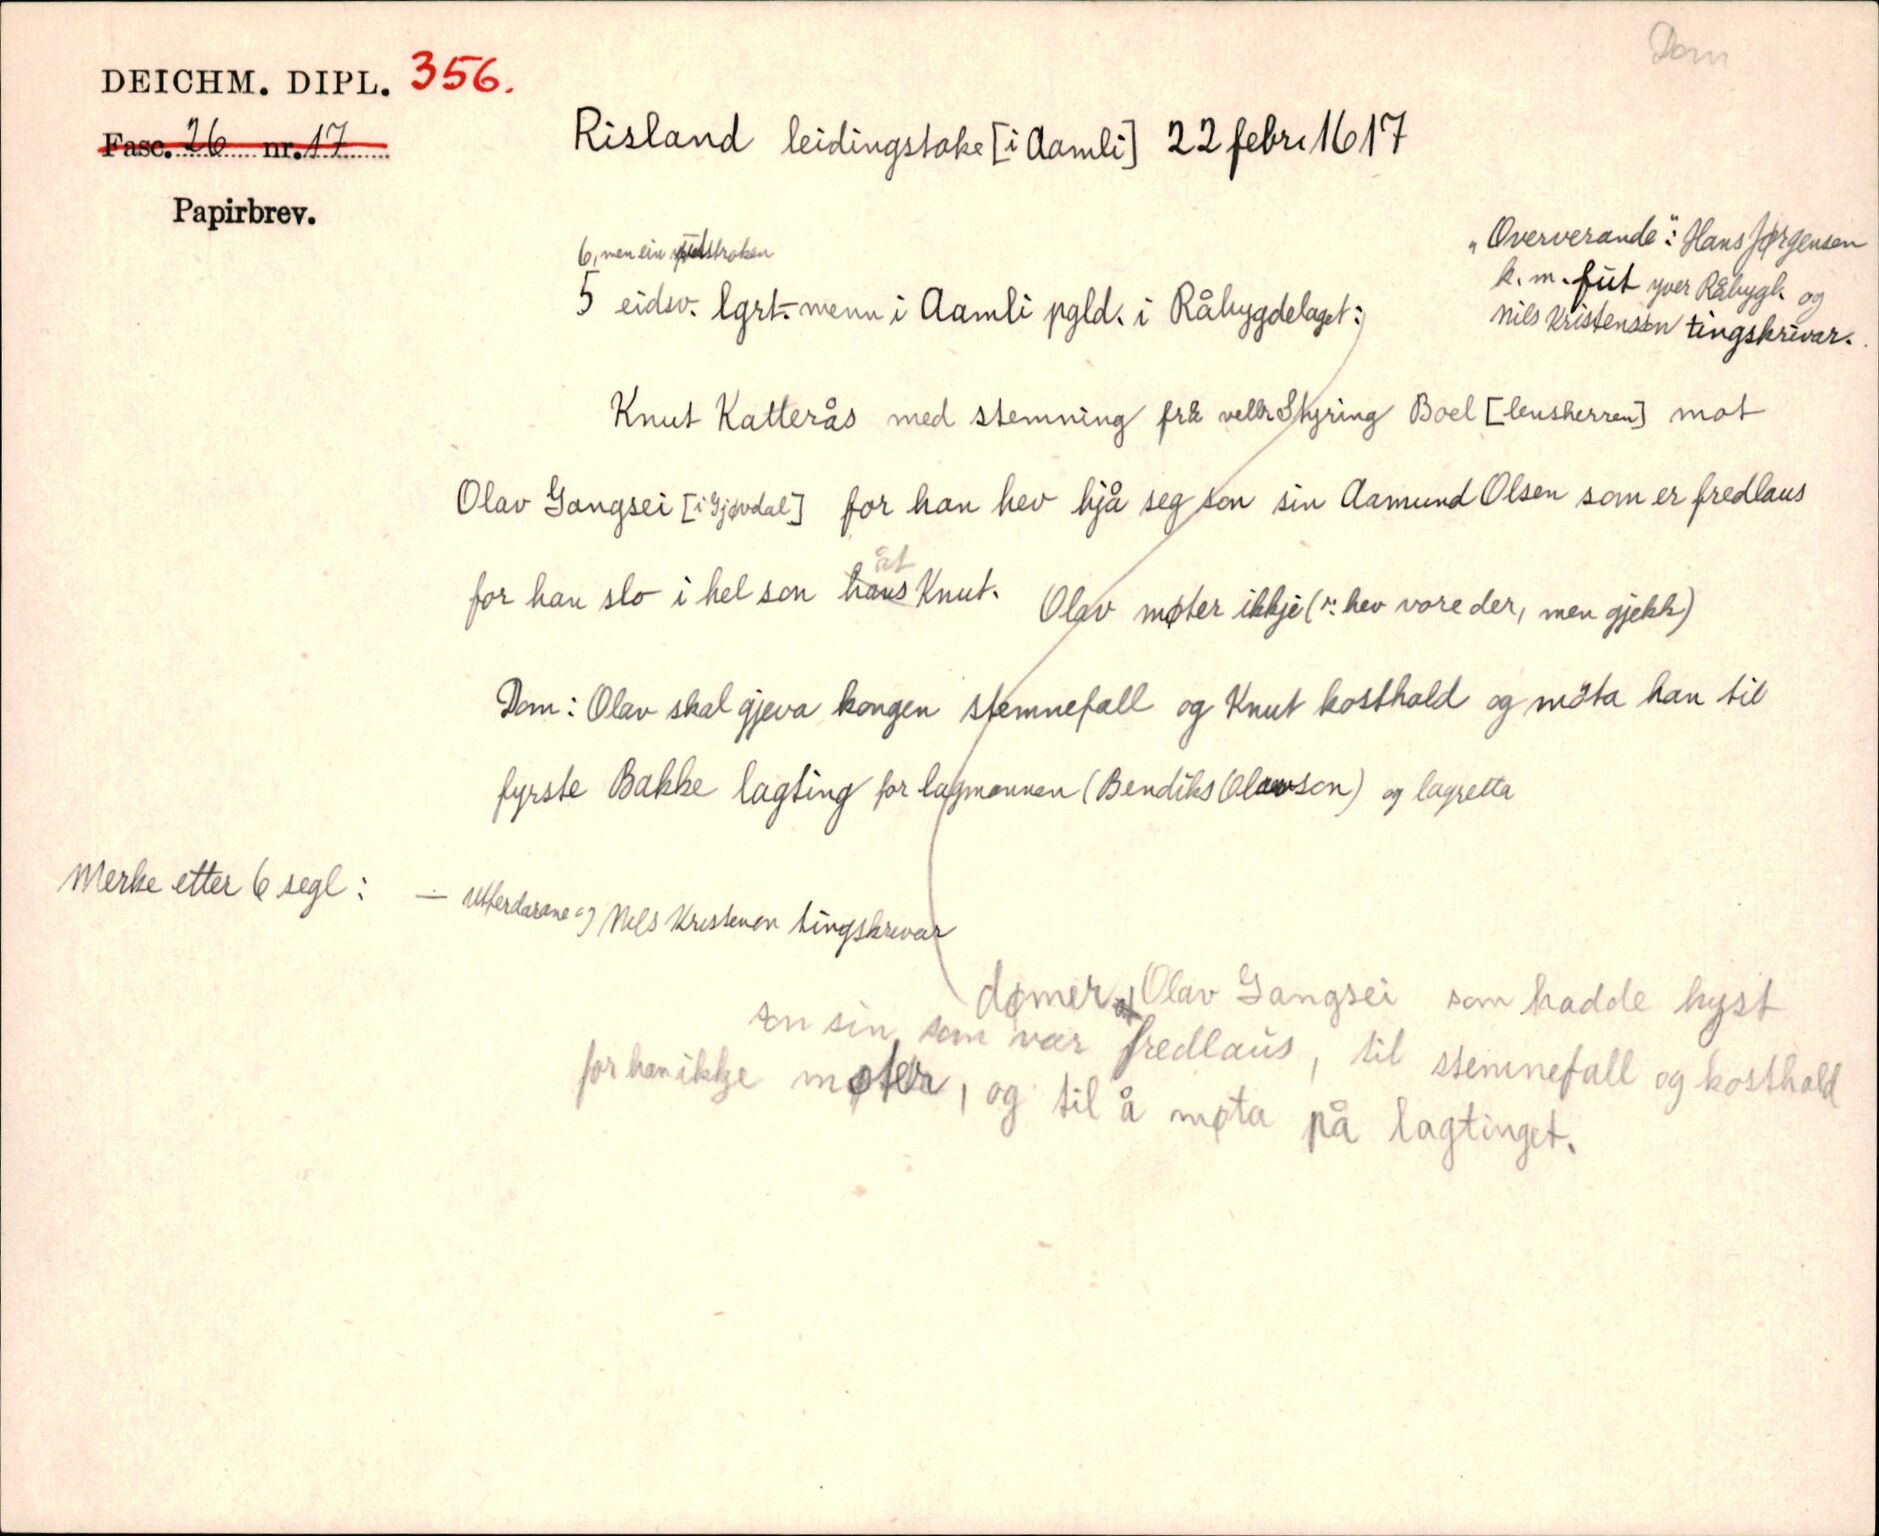 Dom
DEICHM. DIPL. 356.
Fasc. 26 nr. 17
Papirbrev.
Risland leidingstoke [i Aamli] 22 febr. 1617
"Oververande": Hans Jørgensen
k. m. fut yver Råbygl. og
Nils Kristensen tingskrivar.
6, men ein utstroken
5 eidsv. lgrt.-menn i Aamli pgld. i Råbygdelaget:
Knut Katterås med stemning frå velb. Styring Boel [lensherren] mot
Olav Gangsei [i Gjøvdal] for han hev hjå seg son sin Aamund Olsen som er fredlaus
for han slo i hel son hans åt Knut. Olav møter ikkje (ɔ: hev vore der, men gjekk)
Dom: Olav skal gjeva kongen stemnefall og Knut kosthold og möta han til
fyrste Bakke lagting for lagmannen (Bendiks Olavson) og lagretta
Merke etter 6 segl: — Utferdarane og Nils Kristensen tingskrivar
dømer Olav Gangsei som hadde hyst
son sin som var fredlaus, til stemnefall og kosthald
for han ikkje møter, og til å møta på lagtinget.